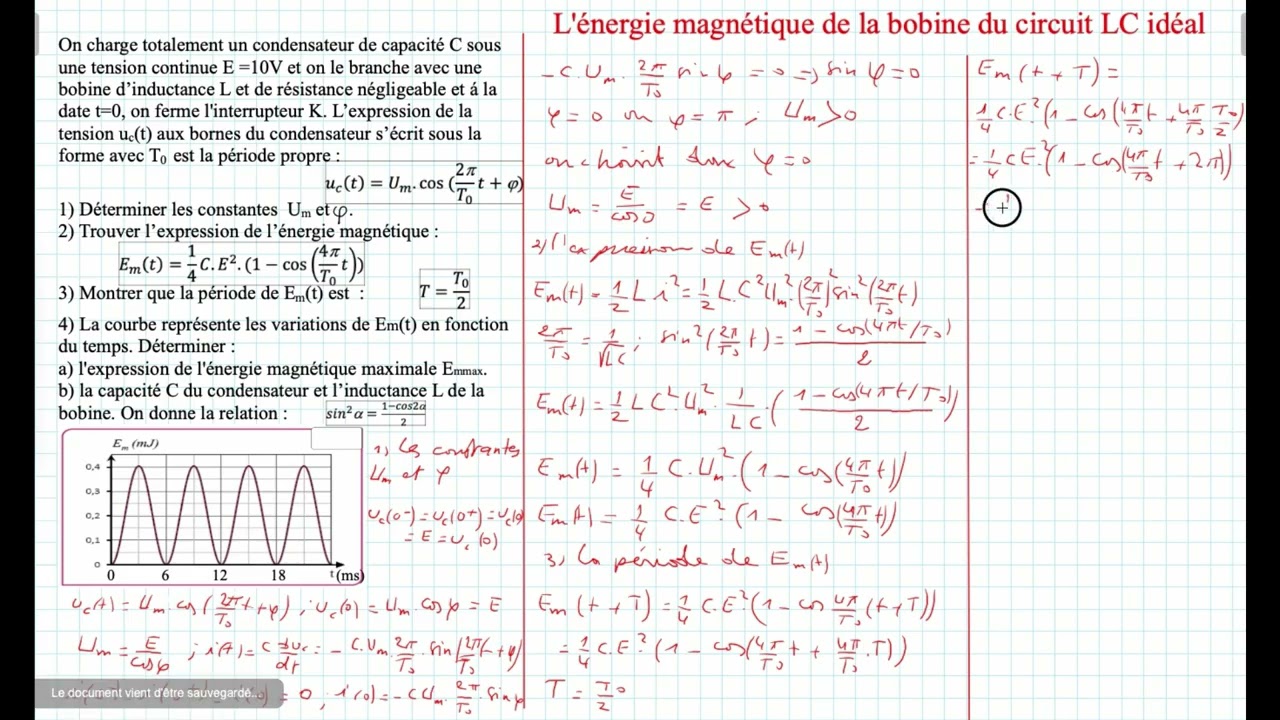 L'énergie magnétique de la bobine du circuit LC idéal
On charge totalement un condensateur de capacité C sous
une tension continue E =10V et on le branche avec une
bobine d'inductance L et de résistance négligeable et á la
date t=0, on ferme l'interrupteur K. L'expression de la
tension uc(t) aux bornes du condensateur s'écrit sous la
forme avec T₀ est la période propre :
uc(t) = Um. cos (2π/T₀ t + φ)
1) Déterminer les constantes Um et φ.
2) Trouver l'expression de l'énergie magnétique :
Em(t) = 1/4 C. E². (1 − cos (4π/T₀ t))
3) Montrer que la période de Em(t) est : T = T₀/2
4) La courbe représente les variations de Em(t) en fonction
du temps. Déterminer :
a) l'expression de l'énergie magnétique maximale Emmax.
b) la capacité C du condensateur et l'inductance L de la
bobine. On donne la relation : sin²α = 1−cos2α/2
Em (mJ)
0,4
0,3
0,2
0,1
0
0 6 12 18 t (ms)
1) Les constantes
Um et φ
uc(0-) = uc(0+) = uc(0)
= E = uc(0)
uc(t) = Um. cos(2π/T₀ t + φ) ; uc(0) = Um. cos φ = E
Um = E/cosφ ; i(t) = C duc/dt = - C.Um 2π/T₀ . sin(2π/T₀ t + φ)
= 0 , i(0) = - C Um. 2π/T₀ . sin φ
Le document vient d'être sauvegardé...
- C. Um. 2π/T₀ sin φ = 0 => sin φ = 0
φ = 0 ou φ = π ; Um > 0
on choisit donc φ = 0
Um = E/cos0 = E > 0
2) l'expression de Em(t)
Em(t) = 1/2 L i² = 1/2 L. C² Um². (2π/T₀)² sin²(2π/T₀ t)
2π/T₀ = 1/√LC ; sin²(2π/T₀ t) = 1 - cos(4πt/T₀)/2
Em(t) = 1/2 L C². Um². 1/LC . (1 - cos(4πt/T₀)/2)
Em(t) = 1/4 C. Um². (1 - cos(4π/T₀ t))
Em(t) = 1/4 C. E². (1 - cos(4π/T₀ t))
3) La période de Em(t)
Em(t + T) = 1/4 C. E²(1 - cos 4π/T₀ (t + T))
= 1/4 C. E². (1 - cos(4π/T₀ t + 4π/T₀ . T))
T = T₀/2
Em(t + T) =
1/4 C. E². (1 - cos(4π/T₀ t + 4π/T₀ T₀/2)
= 1/4 C E². (1 - cos(4π/T₀ t + 2π))